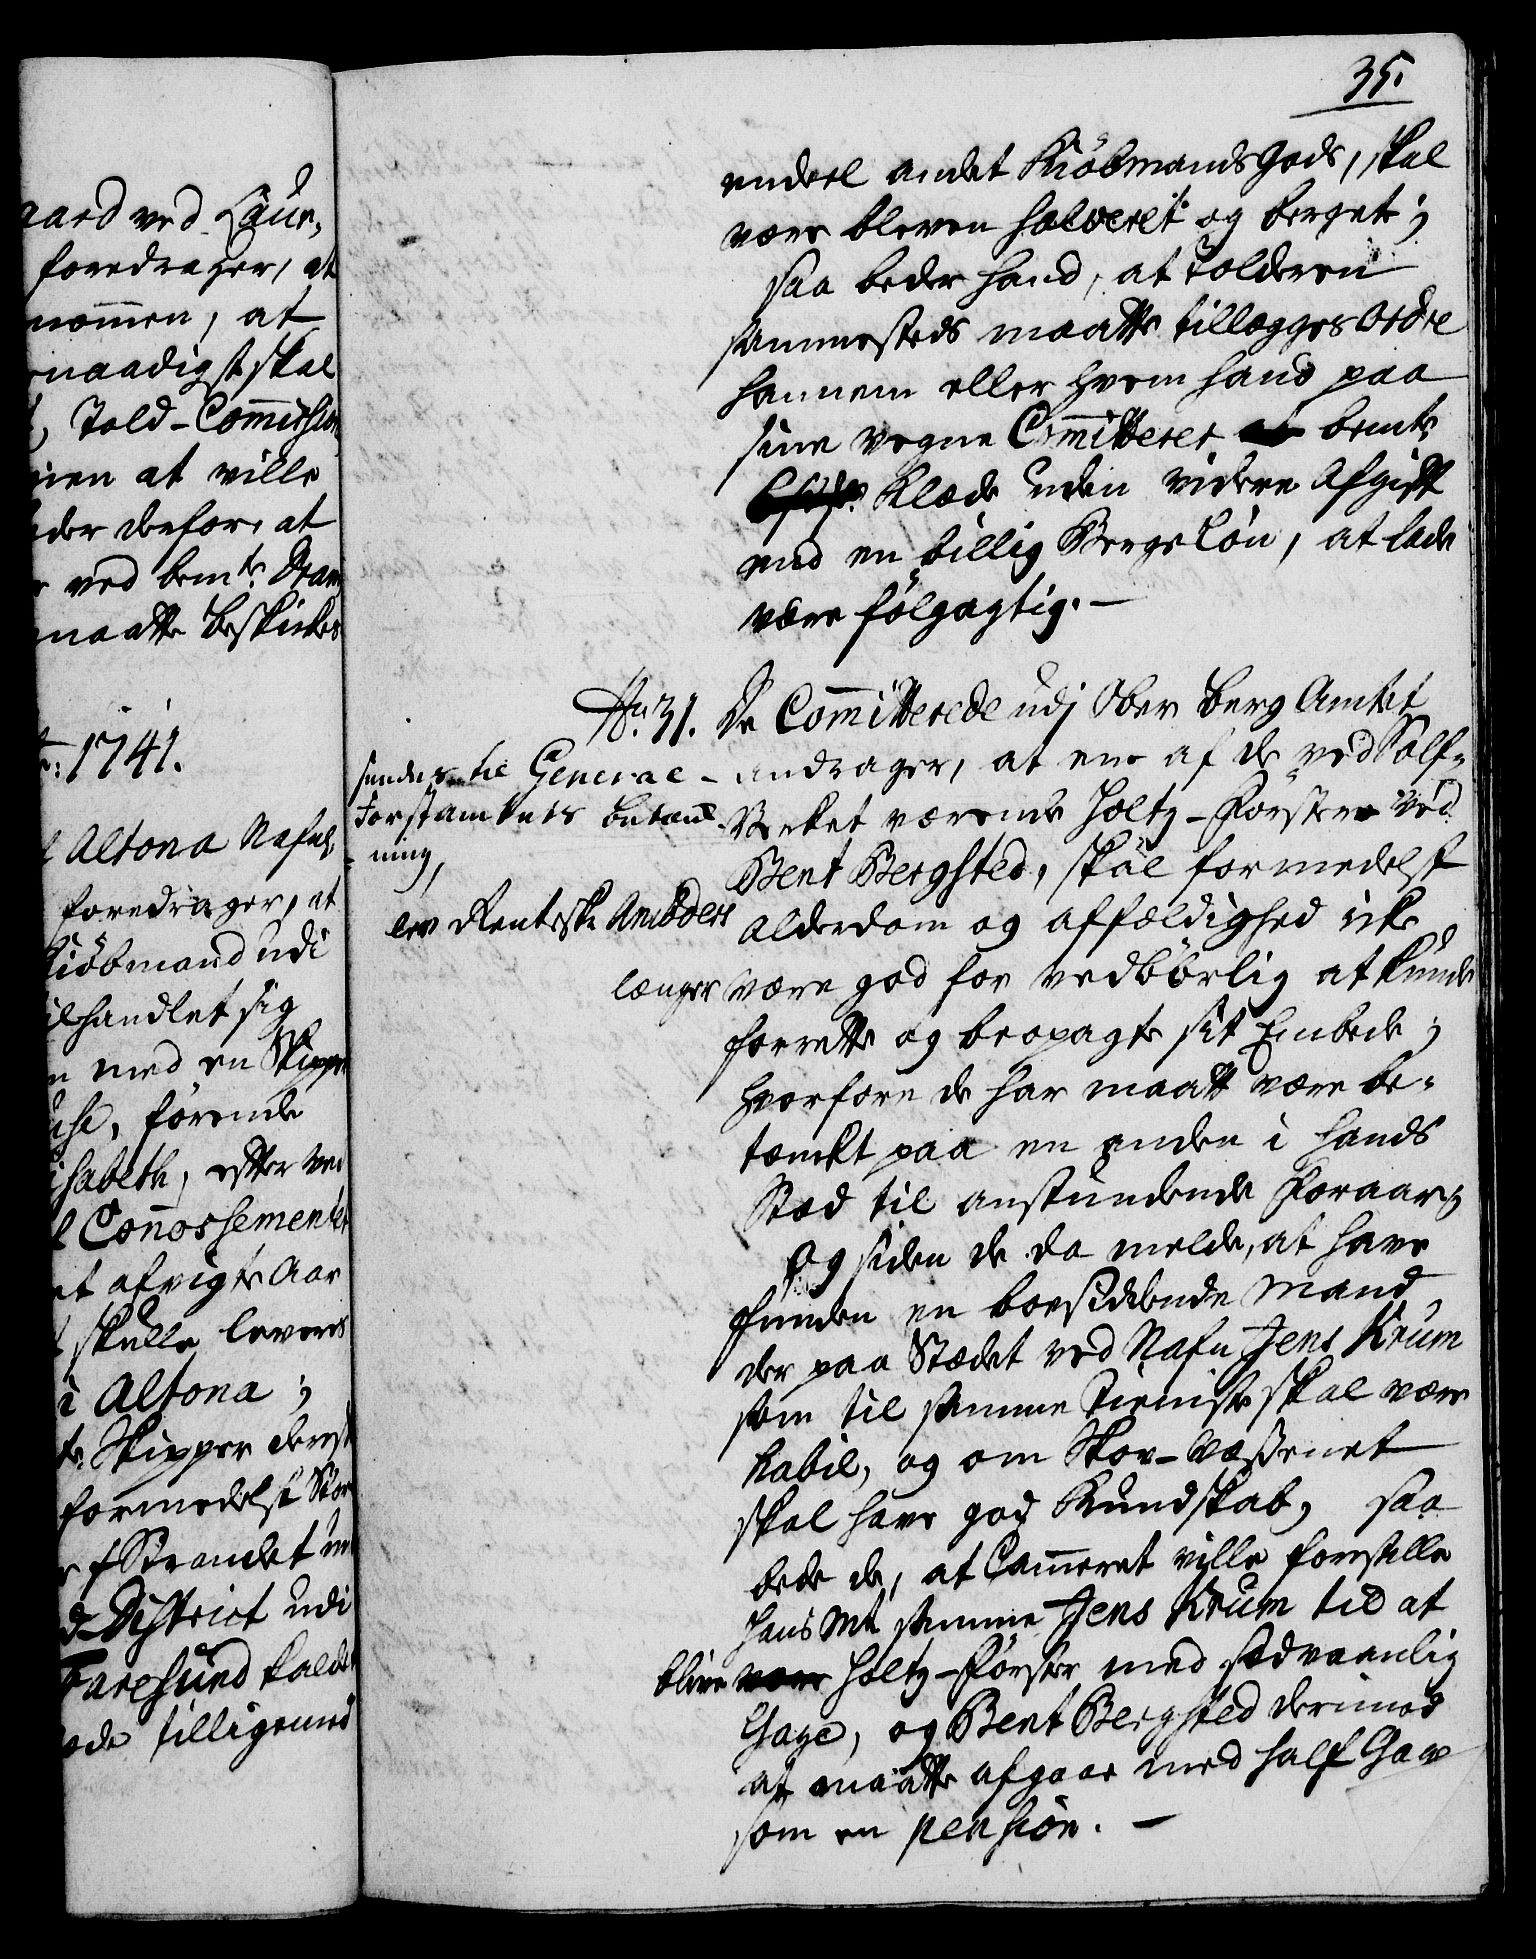 35.
aard ved Laur,
foredrager, at
nommen, at
naadigst skal
Told-Commission
nien at ville
eder derfor, at
ved bemte Dram
maatte beskikes
1741.
Altona Nafnl.
foredrager, at
Kiöbmand udi
ilhandlet sig
n med en Skipper
förende
isabeth, efter ved
l Connossementer
et afvigte Aar
skulle levered
i Altona;
te. Skipper derest
formedelst Stor
r Strandet
d-District udi
Faresund kaldet
ede tilligemed
endeel andet Kiöbmands Gods, skal
være bleven salveret og berget;
saa beder hand, at Tolderen
sammesteds maatte tillægges Ordre
hannem eller hvem hand paa
sine vegne Committerer bemte
Klæde uden videre Afgift
end en billig Berge Löu, at lade
være fölgagtig. —
No. 31. De Committerede udj Ober Berg Amtet
sendes til General-
Forstambtets betænk-
ning,
lev Rentsch Ambders
andrager, at een af de ved Sölf-
Verket værende Holtz-Förstere ved
Bent Bergsted, skal formedelst
Alderdom og affældighed icke
længer være god for vedbörlig at kunde
forrette og beopagte sit Embede;
hvorfore de har maatt være be-
tænkt paa en anden i hands
Stæd til anstundende Foraar;
Og siden de da melde, at have
funden en boesiddende Mand
der paa Stædet ved Nafn Jens Krum
som til samme Tieniste skal være
habil, og om Skov-Væsenet
skal have god Kundskab, saa
bede de, at Cammeret ville forestille
Hans Mt samme Jens Krum til at
blive være Holtz-Förster med sædvaanlig
Gage, og Bent Bergsted derimod
at maatte afgaae med half Gage
som en pension. —